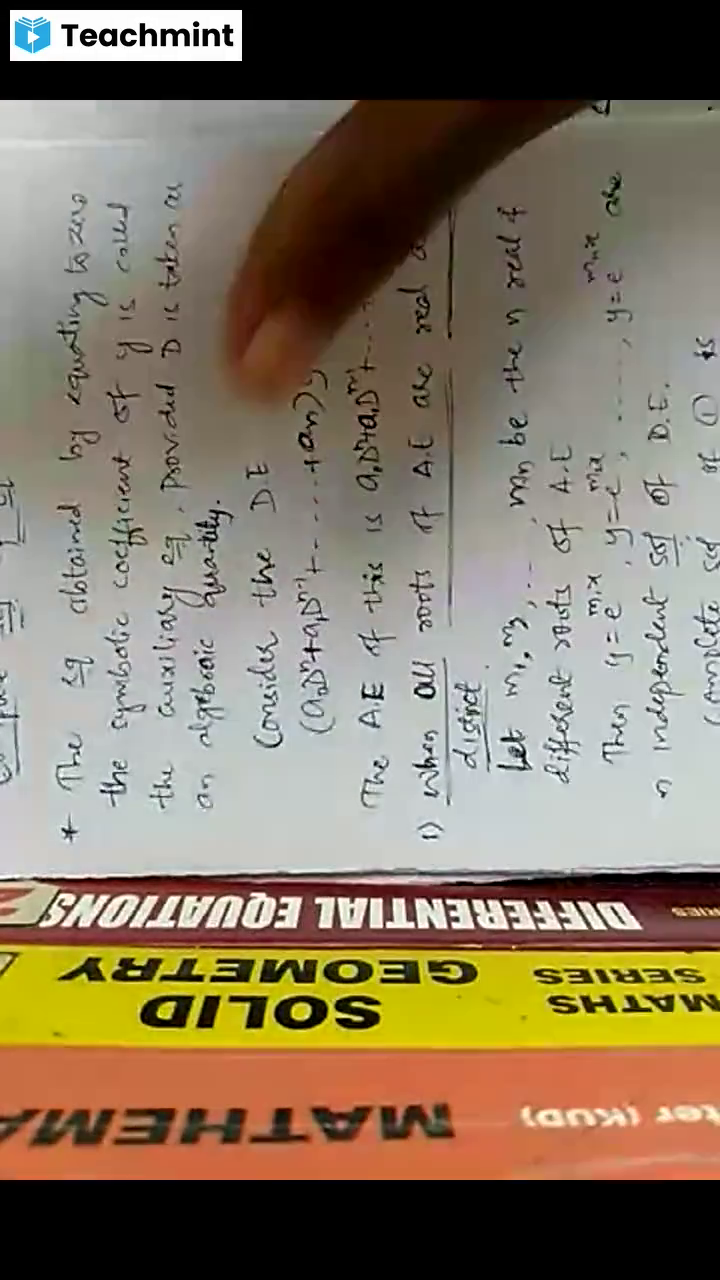 Teachmint
* The eq obtained by equating to zero
the symbolic coefficient of y is called
the auxiliary eq, provided D is taken as
an algebraic quantity.
Consider the DE
(a₀Dⁿ+a₁Dⁿ⁻¹+-----+an)y
The AE of this is a₀Dⁿ+a₁Dⁿ⁻¹+...
1) When all roots of A.E are real
distict.
Let m₁,m₂,... mn be the n real &
different roots of A.E
Then y=e^m₁x, y=e^m₂x, ....., y=e^mnx are
n independent sol of D.E.
Complete sol of ① is
DIFFERENTIAL EQUATIONS
SOLID
GEOMETRY
MATHS
SERIES
MATHEMA
ter (KUD)